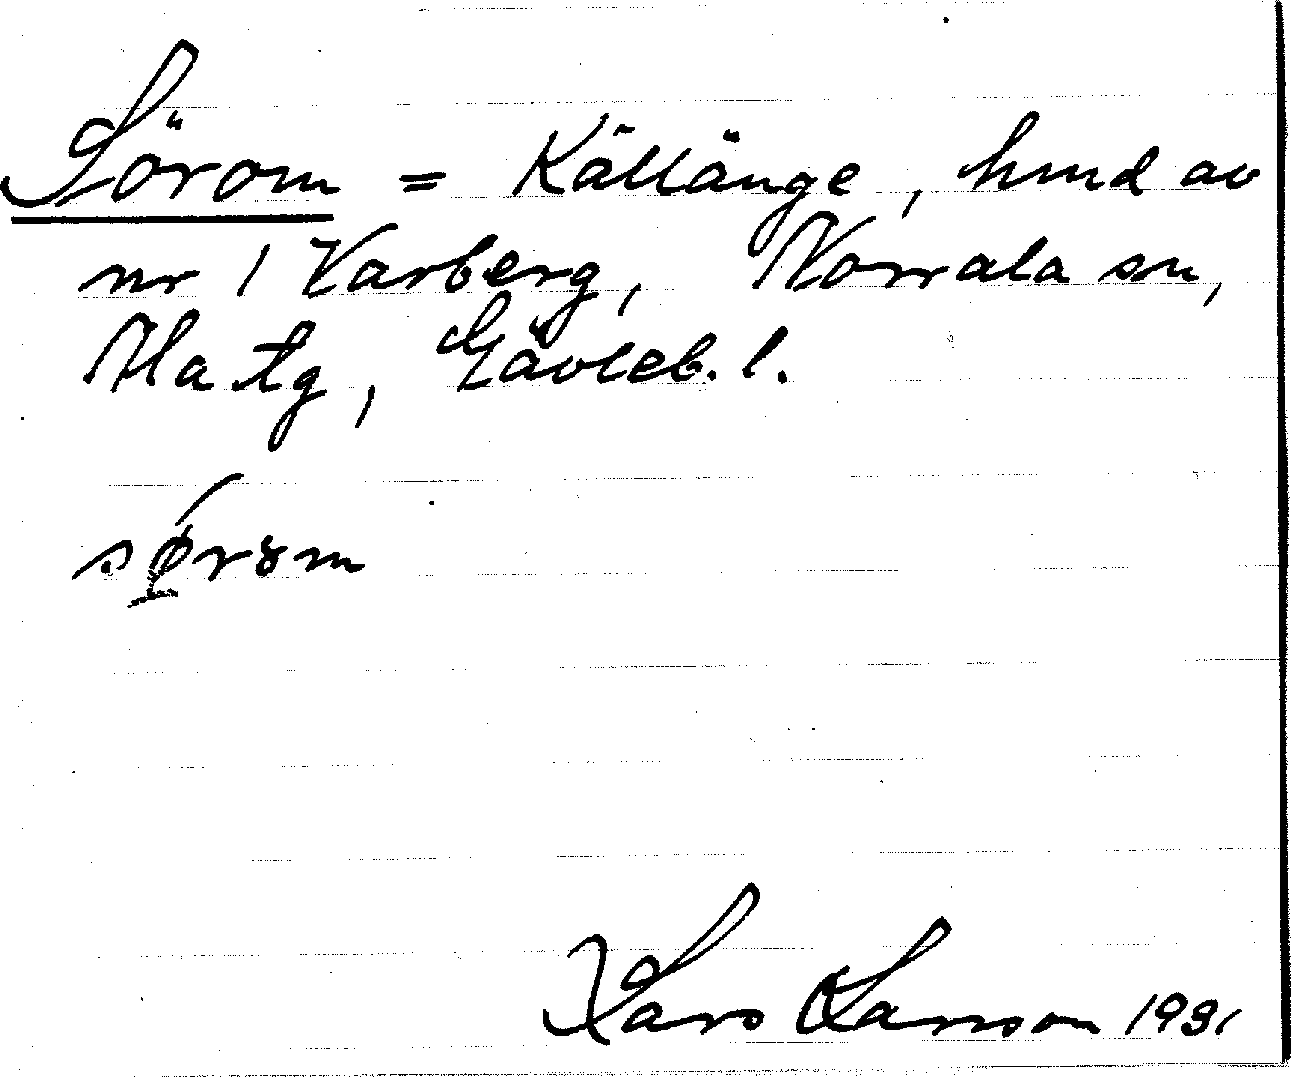 Sörom = Källänge, hmd av
nr 1 Varberg, Norrala sn,
Ala tg, Gävleb. l.
sørɤm
Lars Larsson 1931